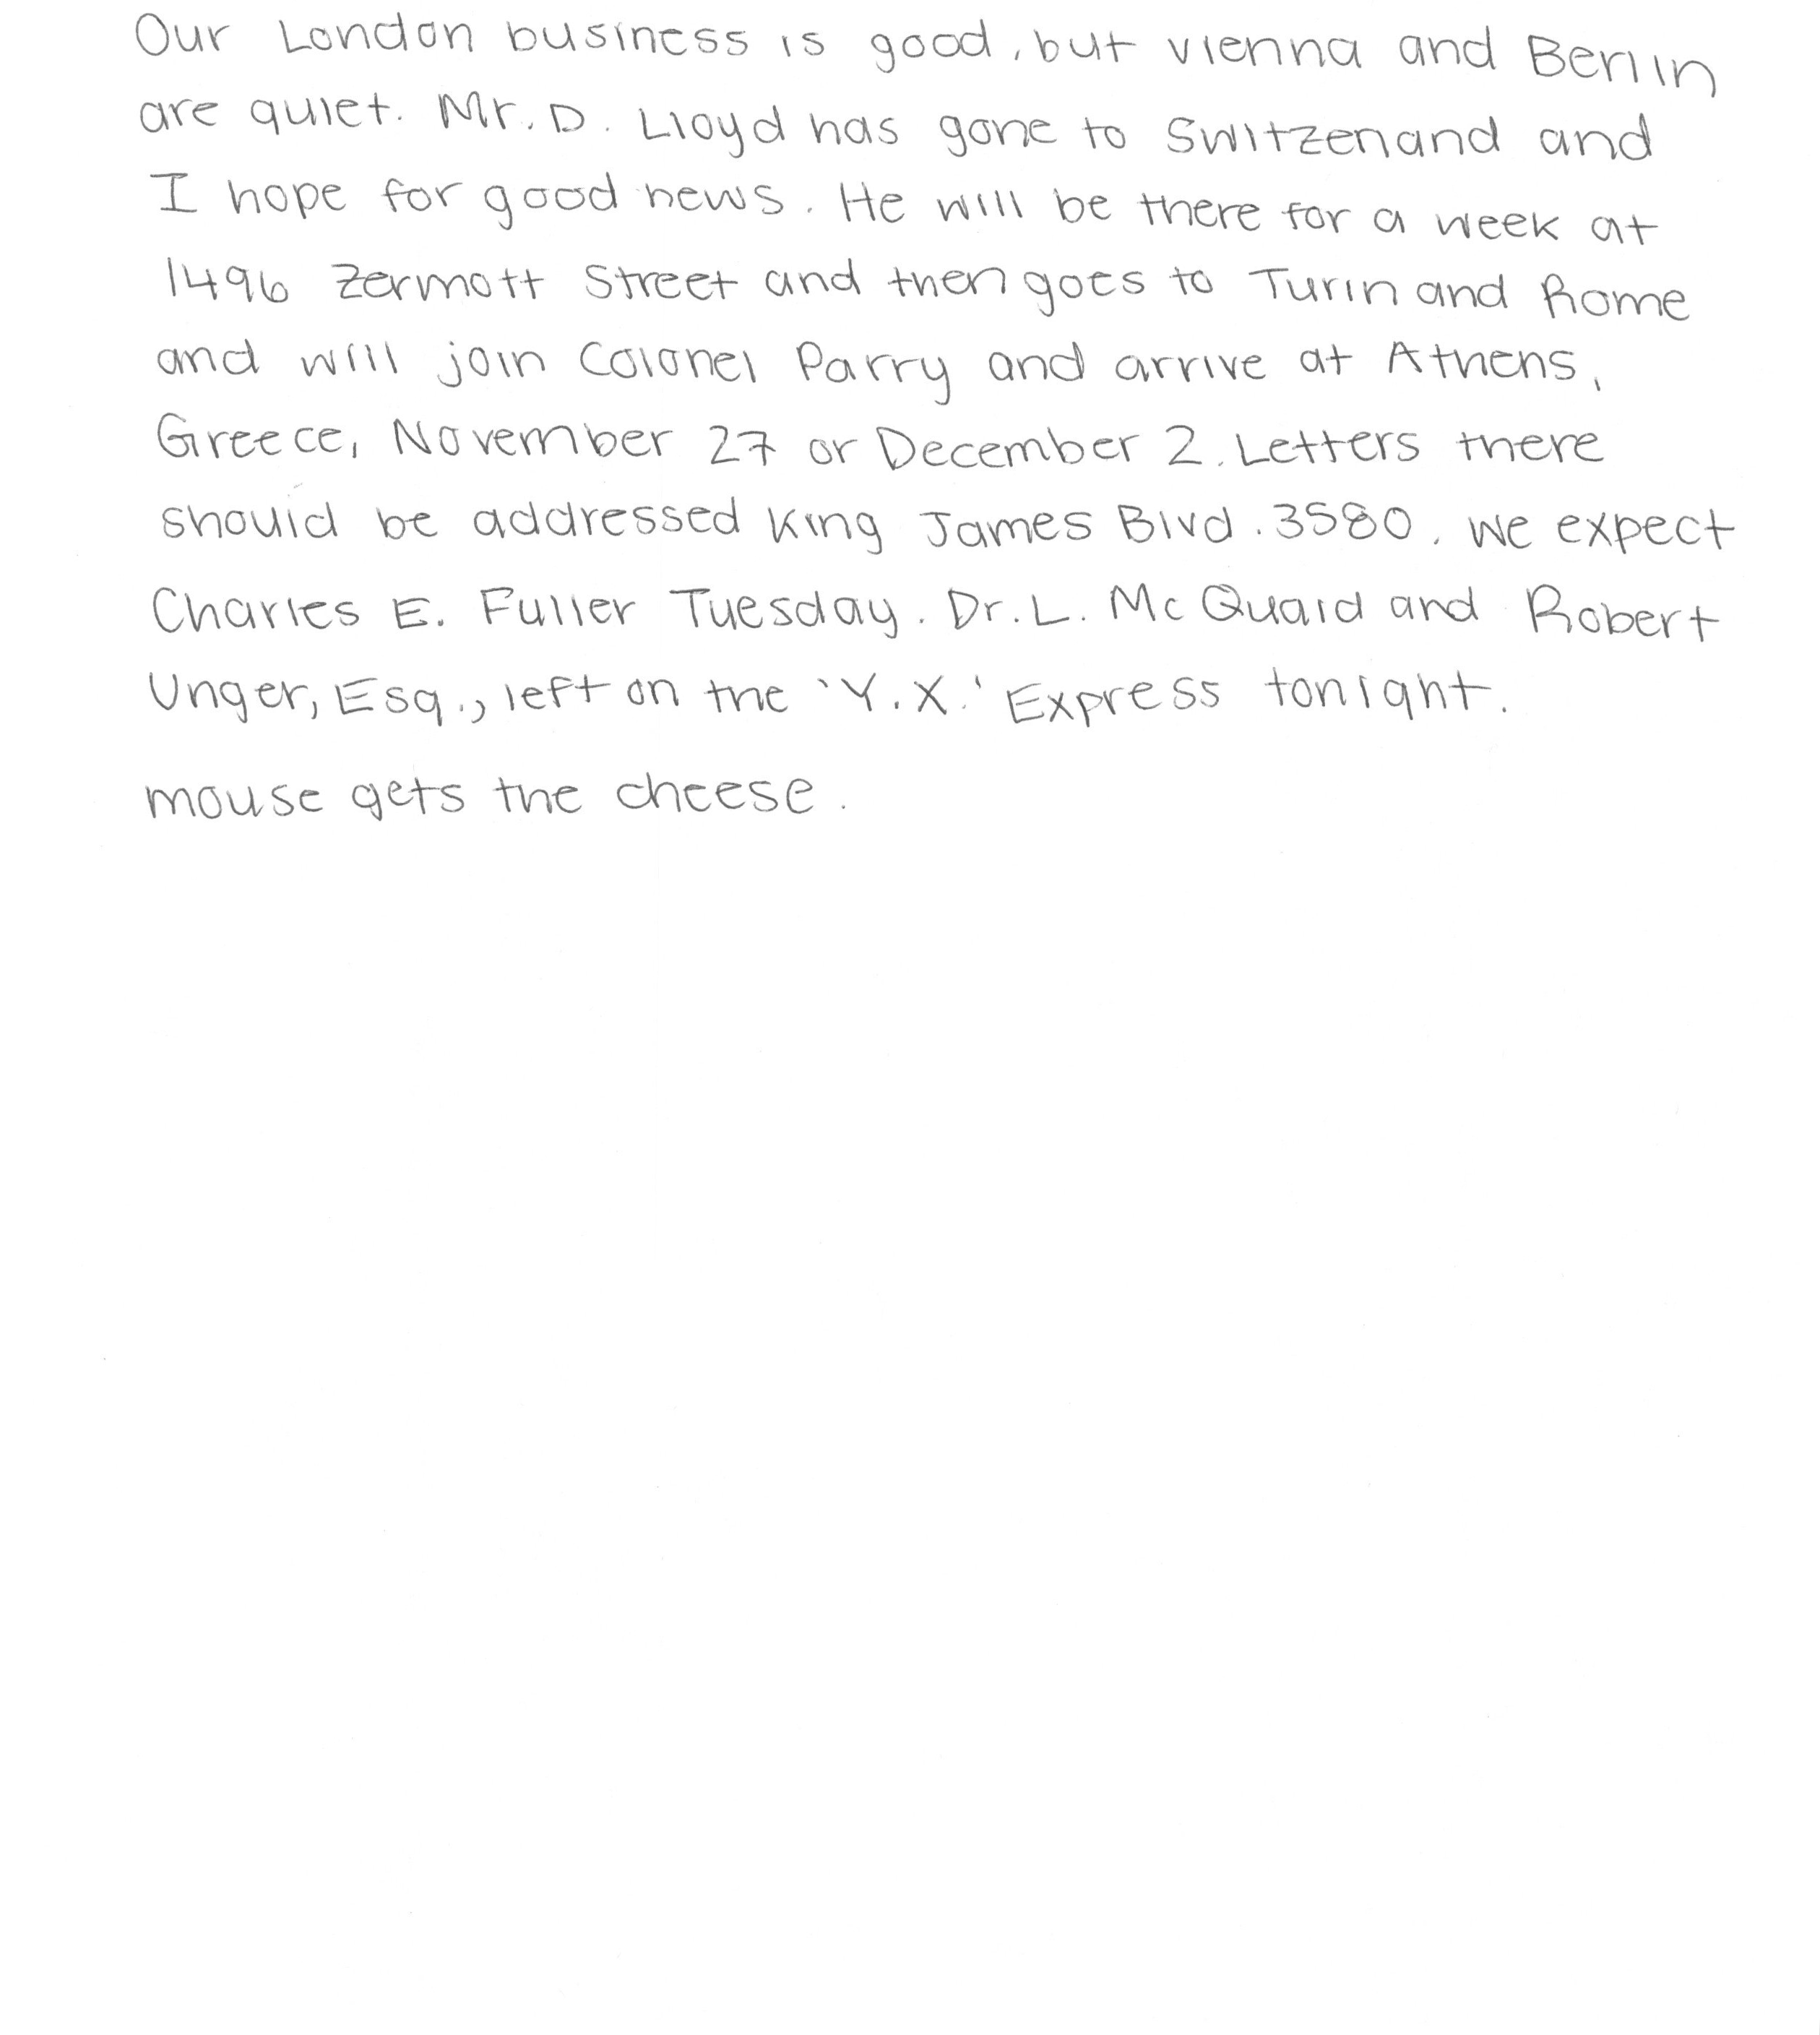 Our London business is good, but vienna and Berlin
are quiet. Mr. D. Lloyd has gone to Switzerland and
I hope for good news. He will be there for a week at
1496 Zermott Street and then goes to Turin and Rome
and will join Colonel Parry and arrive at Athens,
Greece, November 27 or December 2. Letters there
should be addressed King James Blvd. 3580. We expect
Charles E. Fuller Tuesday. Dr. L. McQuaid and Robert
Unger, Esq., left on the 'Y.X.' Express tonight.
mouse gets the cheese.